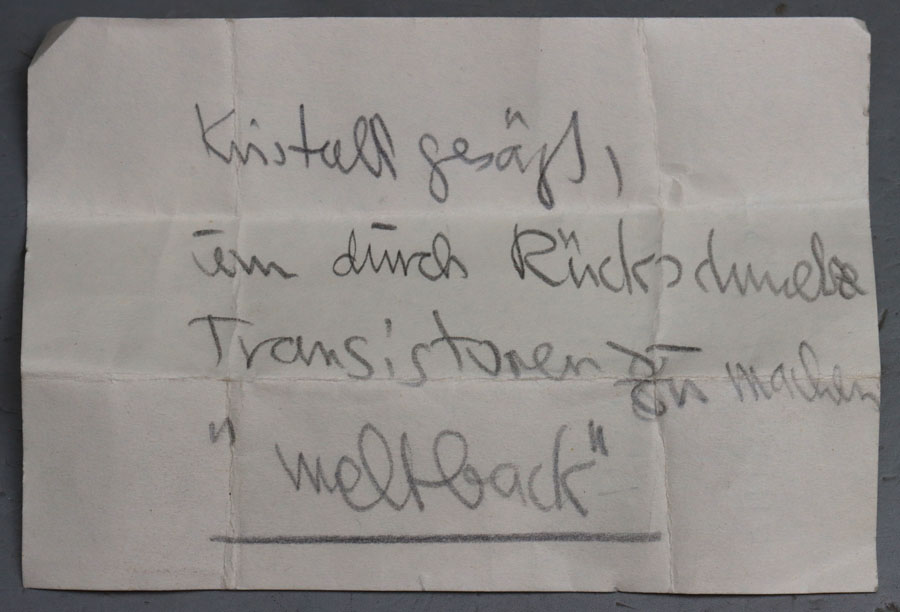 Kristall gesägt,
um durch Rückschmelze
Transistoren zu machen
"meltback"